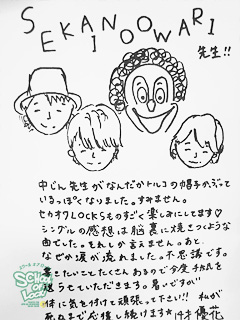 SEKAINOOWARI
先生!!
中じん先生がなんだかトルコの帽子かぶって
いるっぽくなりました。すみません。
セカオワLOCKSものすごく楽しみにしてます♡
シングルの感想は脳裏に焼きつくような
曲でした。それしか言えません。あと、
なぜか涙が流れました。不思議です。
書きたいことたくさんあるので今度手紙を
送らせていただきます。暑いですが
体に気を付けて頑張って下さい!! 私が
死ぬまで応援し続けます
優花
SCHOOL OF LOCK!